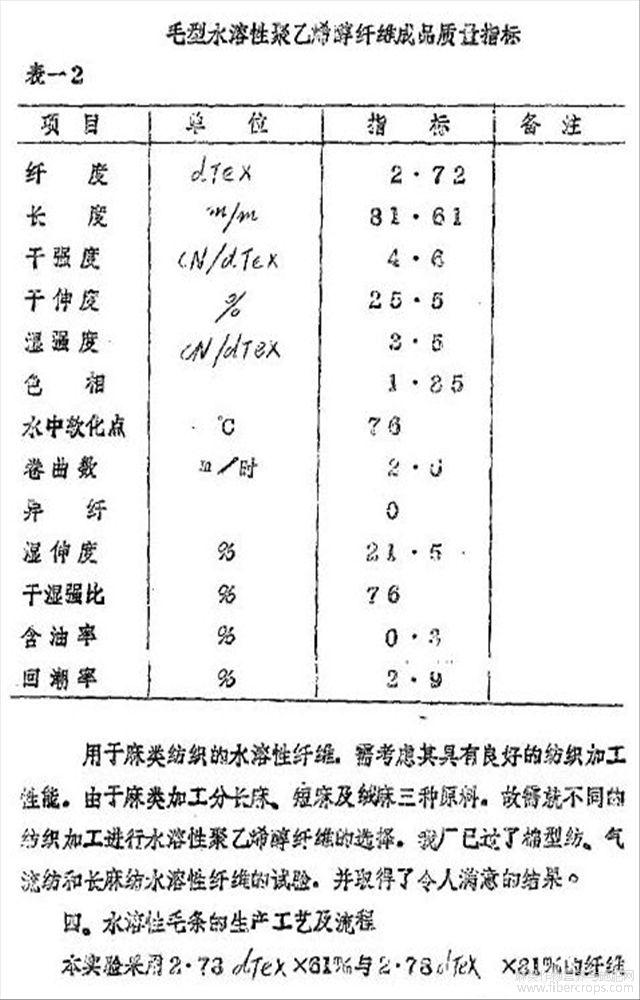 毛型水溶性聚乙烯醇纤维成品质量指标
表一2
项目 单位 指标 备注
纤度 dTex 2·72
长度 m/m 81·61
干强度 CN/dTex 4·6
干伸度 % 25·5
湿强度 CN/dTex 3·5
色相 1·85
水中软化点 ℃ 76
卷曲数 m/时 2·0
异纤 0
湿伸度 % 21·5
干湿强比 % 76
含油率 % 0·3
回潮率 % 2·9
用于麻类纺织的水溶性纤维．需考虑其具有良好的纺织加工
性能。由于麻类加工分长麻、短麻及绒麻三种原料。故需就不同的
纺织加工进行水溶性聚乙烯醇纤维的选择。我厂已过了棉型纺、气
流纺和长麻纺水溶性纤维的试验．并取得了令人满意的结果。
四。水溶性毛条的生产工艺及流程
本实验采用2·78 dTex ×61%与2·78 dTex ×81%的纤维
www.fibercrops.com